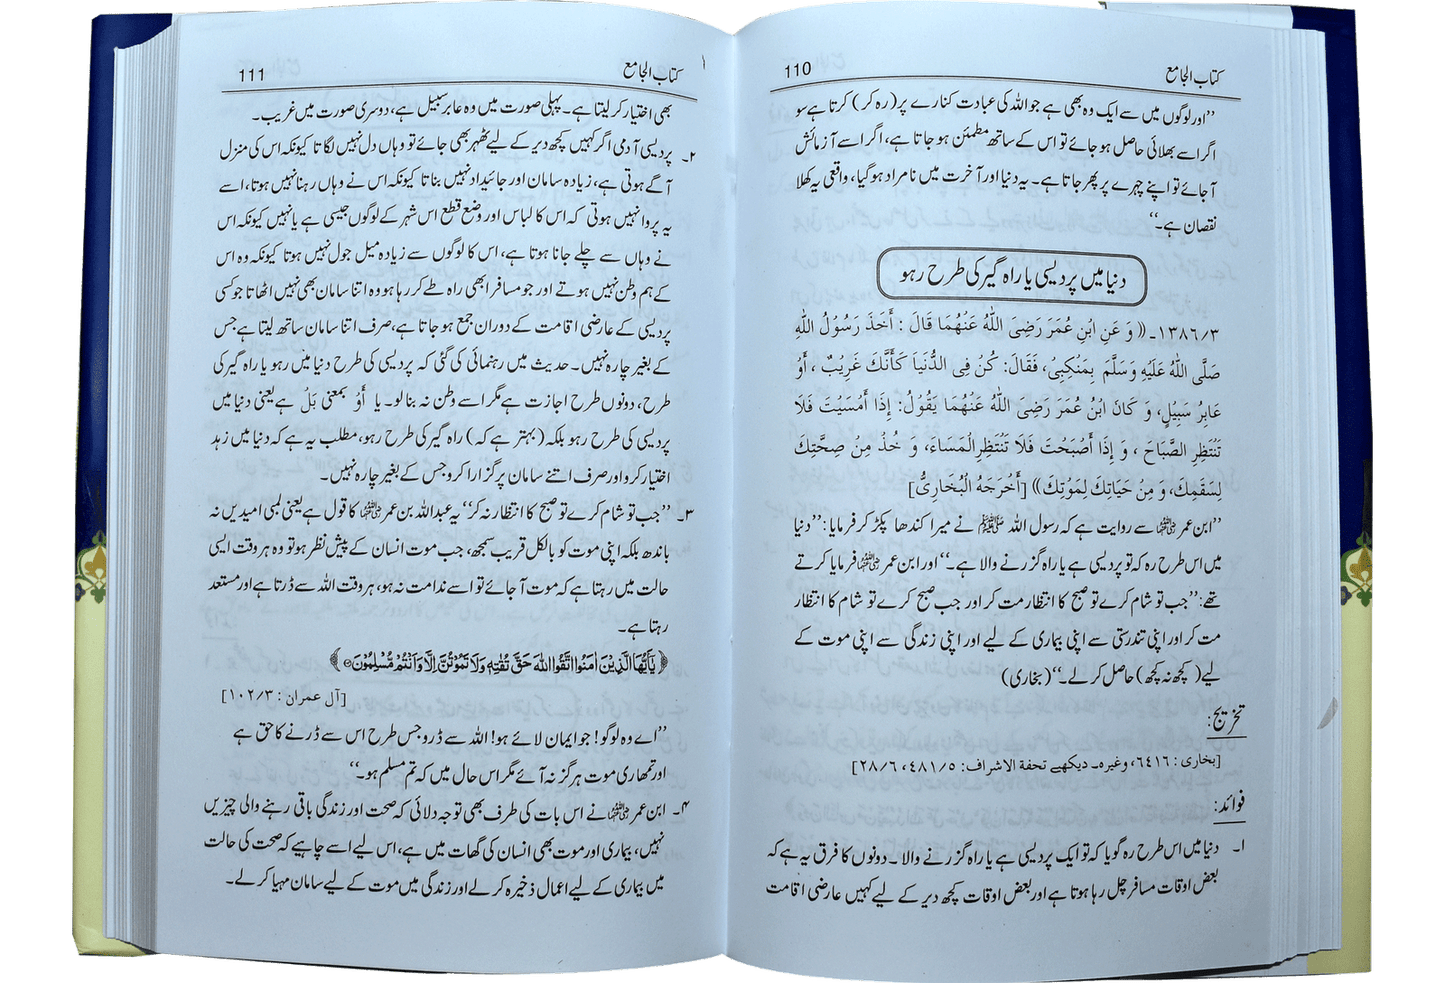 کتاب الجامع 110
’’اور لوگوں میں سے ایک وہ بھی ہے جو اللہ کی عبادت کنارے پر (رہ کر) کرتا ہے سو
اگر اسے بھلائی حاصل ہو جائے تو اس کے ساتھ مطمئن ہو جاتا ہے، اگر اسے آزمائش
آ جائے تو اپنے چہرے پر پھر جاتا ہے۔ یہ دنیا اور آخرت میں نامراد ہو گیا، واقعی یہ کھلا
نقصان ہے۔‘‘
دنیا میں پردیسی یا راہ گیر کی طرح رہو
۱۳۸۶/۳۔ (( وَ عَنِ ابْنِ عُمَرَ رَضِیَ اللّٰہُ عَنْھُمَا قَالَ : أَخَذَ رَسُوْلُ اللّٰہِ
صَلَّی اللّٰہُ عَلَیْہِ وَسَلَّمَ بِمَنْکِبِیْ، فَقَالَ: کُنْ فِی الدُّنْیَا کَأَنَّکَ غَرِیْبٌ ، أَوْ
عَابِرُ سَبِیْلٍ، وَ کَانَ ابْنُ عُمَرَ رَضِیَ اللّٰہُ عَنْھُمَا یَقُوْلُ: إِذَا أَمْسَیْتَ فَلاَ
تَنْتَظِرِ الصَّبَاحَ ، وَ إِذَا أَصْبَحْتَ فَلاَ تَنْتَظِرِ الْمَسَاءَ، وَ خُذْ مِنْ صِحَّتِکَ
لِسَقَمِکَ، وَ مِنْ حَیَاتِکَ لِمَوْتِکَ)) [أَخْرَجَہُ الْبُخَارِیُّ]
’’ابن عمر رضی اللہ عنہما سے روایت ہے کہ رسول اللہ ﷺ نے میرا کندھا پکڑ کر فرمایا: ’’دنیا
میں اس طرح رہ کہ تو پردیسی ہے یا راہ گزرنے والا ہے۔‘‘ اور ابن عمر رضی اللہ عنہما فرمایا کرتے
تھے: ’’جب تو شام کرے تو صبح کا انتظار مت کر اور جب صبح کرے تو شام کا انتظار
مت کر اور اپنی تندرستی سے اپنی بیماری کے لیے اور اپنی زندگی سے اپنی موت کے
لیے (کچھ نہ کچھ) حاصل کر لے۔‘‘ (بخاری)
تخریج:
[بخاری : ۶۴۱۶، وغیرہ۔ دیکھیے تحفۃ الاشراف: ۴۸۱/۵، ۲۸/۶]
فوائد:
۱۔ دنیا میں اس طرح رہ گویا کہ تو ایک پردیسی ہے یا راہ گزرنے والا ۔ دونوں کا فرق یہ ہے کہ
بعض اوقات مسافر چل رہا ہوتا ہے اور بعض اوقات کچھ دیر کے لیے کہیں عارضی اقامت
کتاب الجامع 111
بھی اختیار کر لیتا ہے۔ پہلی صورت میں وہ عابر سبیل ہے، دوسری صورت میں غریب۔
۲۔ پردیسی آدمی اگر کہیں کچھ دیر کے لیے ٹھہر بھی جائے تو وہاں دل نہیں لگاتا کیونکہ اس کی منزل
آگے ہوتی ہے، زیادہ سامان اور جائیداد نہیں بناتا کیونکہ اس نے وہاں رہنا نہیں ہوتا، اسے
یہ پروا نہیں ہوتی کہ اس کا لباس اور وضع قطع اس شہر کے لوگوں جیسی ہے یا نہیں کیونکہ اس
نے وہاں سے چلے جانا ہوتا ہے، اس کا لوگوں سے زیادہ میل جول نہیں ہوتا کیونکہ وہ اس
کے ہم وطن نہیں ہوتے اور جو مسافر ابھی راہ طے کر رہا ہو وہ اتنا سامان بھی نہیں اٹھاتا جو کسی
پردیسی کے عارضی اقامت کے دوران جمع ہو جاتا ہے، صرف اتنا سامان ساتھ لیتا ہے جس
کے بغیر چارہ نہیں۔ حدیث میں رہنمائی کی گئی کہ پردیسی کی طرح دنیا میں رہو یا راہ گیر کی
طرح، دونوں طرح اجازت ہے مگر اسے وطن نہ بنا لو۔ یا أَوْ بمعنی بَلْ ہے یعنی دنیا میں
پردیسی کی طرح رہو بلکہ (بہتر ہے کہ) راہ گیر کی طرح رہو، مطلب یہ ہے کہ دنیا میں زہد
اختیار کرو اور صرف اتنے سامان پر گزارا کرو جس کے بغیر چارہ نہیں۔
۳۔ ’’جب تو شام کرے تو صبح کا انتظار نہ کر‘‘ یہ عبداللہ بن عمر رضی اللہ عنہما کا قول ہے یعنی لمبی امیدیں نہ
باندھ بلکہ اپنی موت کو بالکل قریب سمجھ، جب موت انسان کے پیش نظر ہو تو وہ ہر وقت ایسی
حالت میں رہتا ہے کہ موت آ جائے تو اسے ندامت نہ ہو، ہر وقت اللہ سے ڈرتا ہے اور مستعد
رہتا ہے۔
﴿ یٰۤاَیُّهَا الَّذِیْنَ اٰمَنُوا اتَّقُوا اللّٰهَ حَقَّ تُقٰتِهٖ وَ لَا تَمُوْتُنَّ اِلَّا وَ اَنْتُمْ مُّسْلِمُوْنَ ﴾
[آل عمران : ۱۰۲/۳]
’’اے وہ لوگو! جو ایمان لائے ہو! اللہ سے ڈرو جس طرح اس سے ڈرنے کا حق ہے
اور تمھاری موت ہرگز نہ آئے مگر اس حال میں کہ تم مسلم ہو۔‘‘
۴۔ ابن عمر رضی اللہ عنہما نے اس بات کی طرف بھی توجہ دلائی کہ صحت اور زندگی باقی رہنے والی چیزیں
نہیں، بیماری اور موت بھی انسان کی گھات میں ہے، اس لیے اسے چاہیے کہ صحت کی حالت
میں بیماری کے لیے اعمال ذخیرہ کر لے اور زندگی میں موت کے لیے سامان مہیا کر لے۔